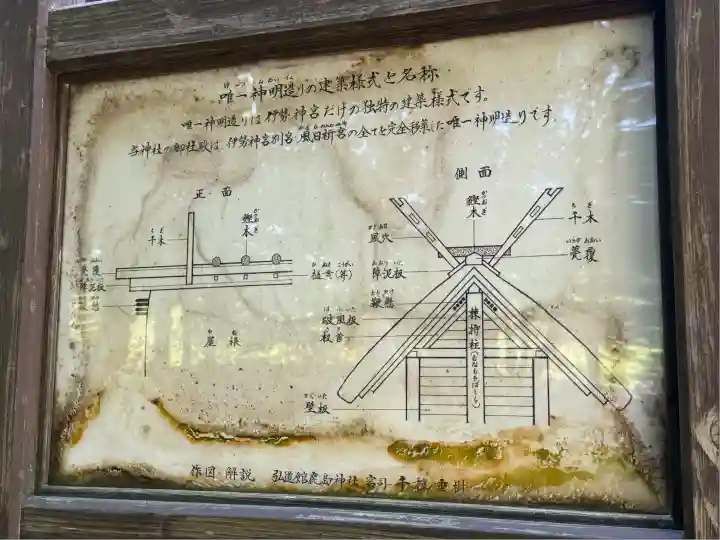 唯一神明造りの建築様式と名称
唯一神明造りは伊勢神宮だけの独特の建築様式です。
当神社の御社殿は、伊勢神宮別宮、風日祈宮の全てを完全移築した唯一神明造りです。
正面
側面
千木
鰹木
甍覆
障泥板
屋根
鰹木
千木
風穴
甍覆
障泥板
鞭懸
破風板
棟持柱(むなもちばしら)
壁板
作図 解説 弘道館鹿島神社 宮司